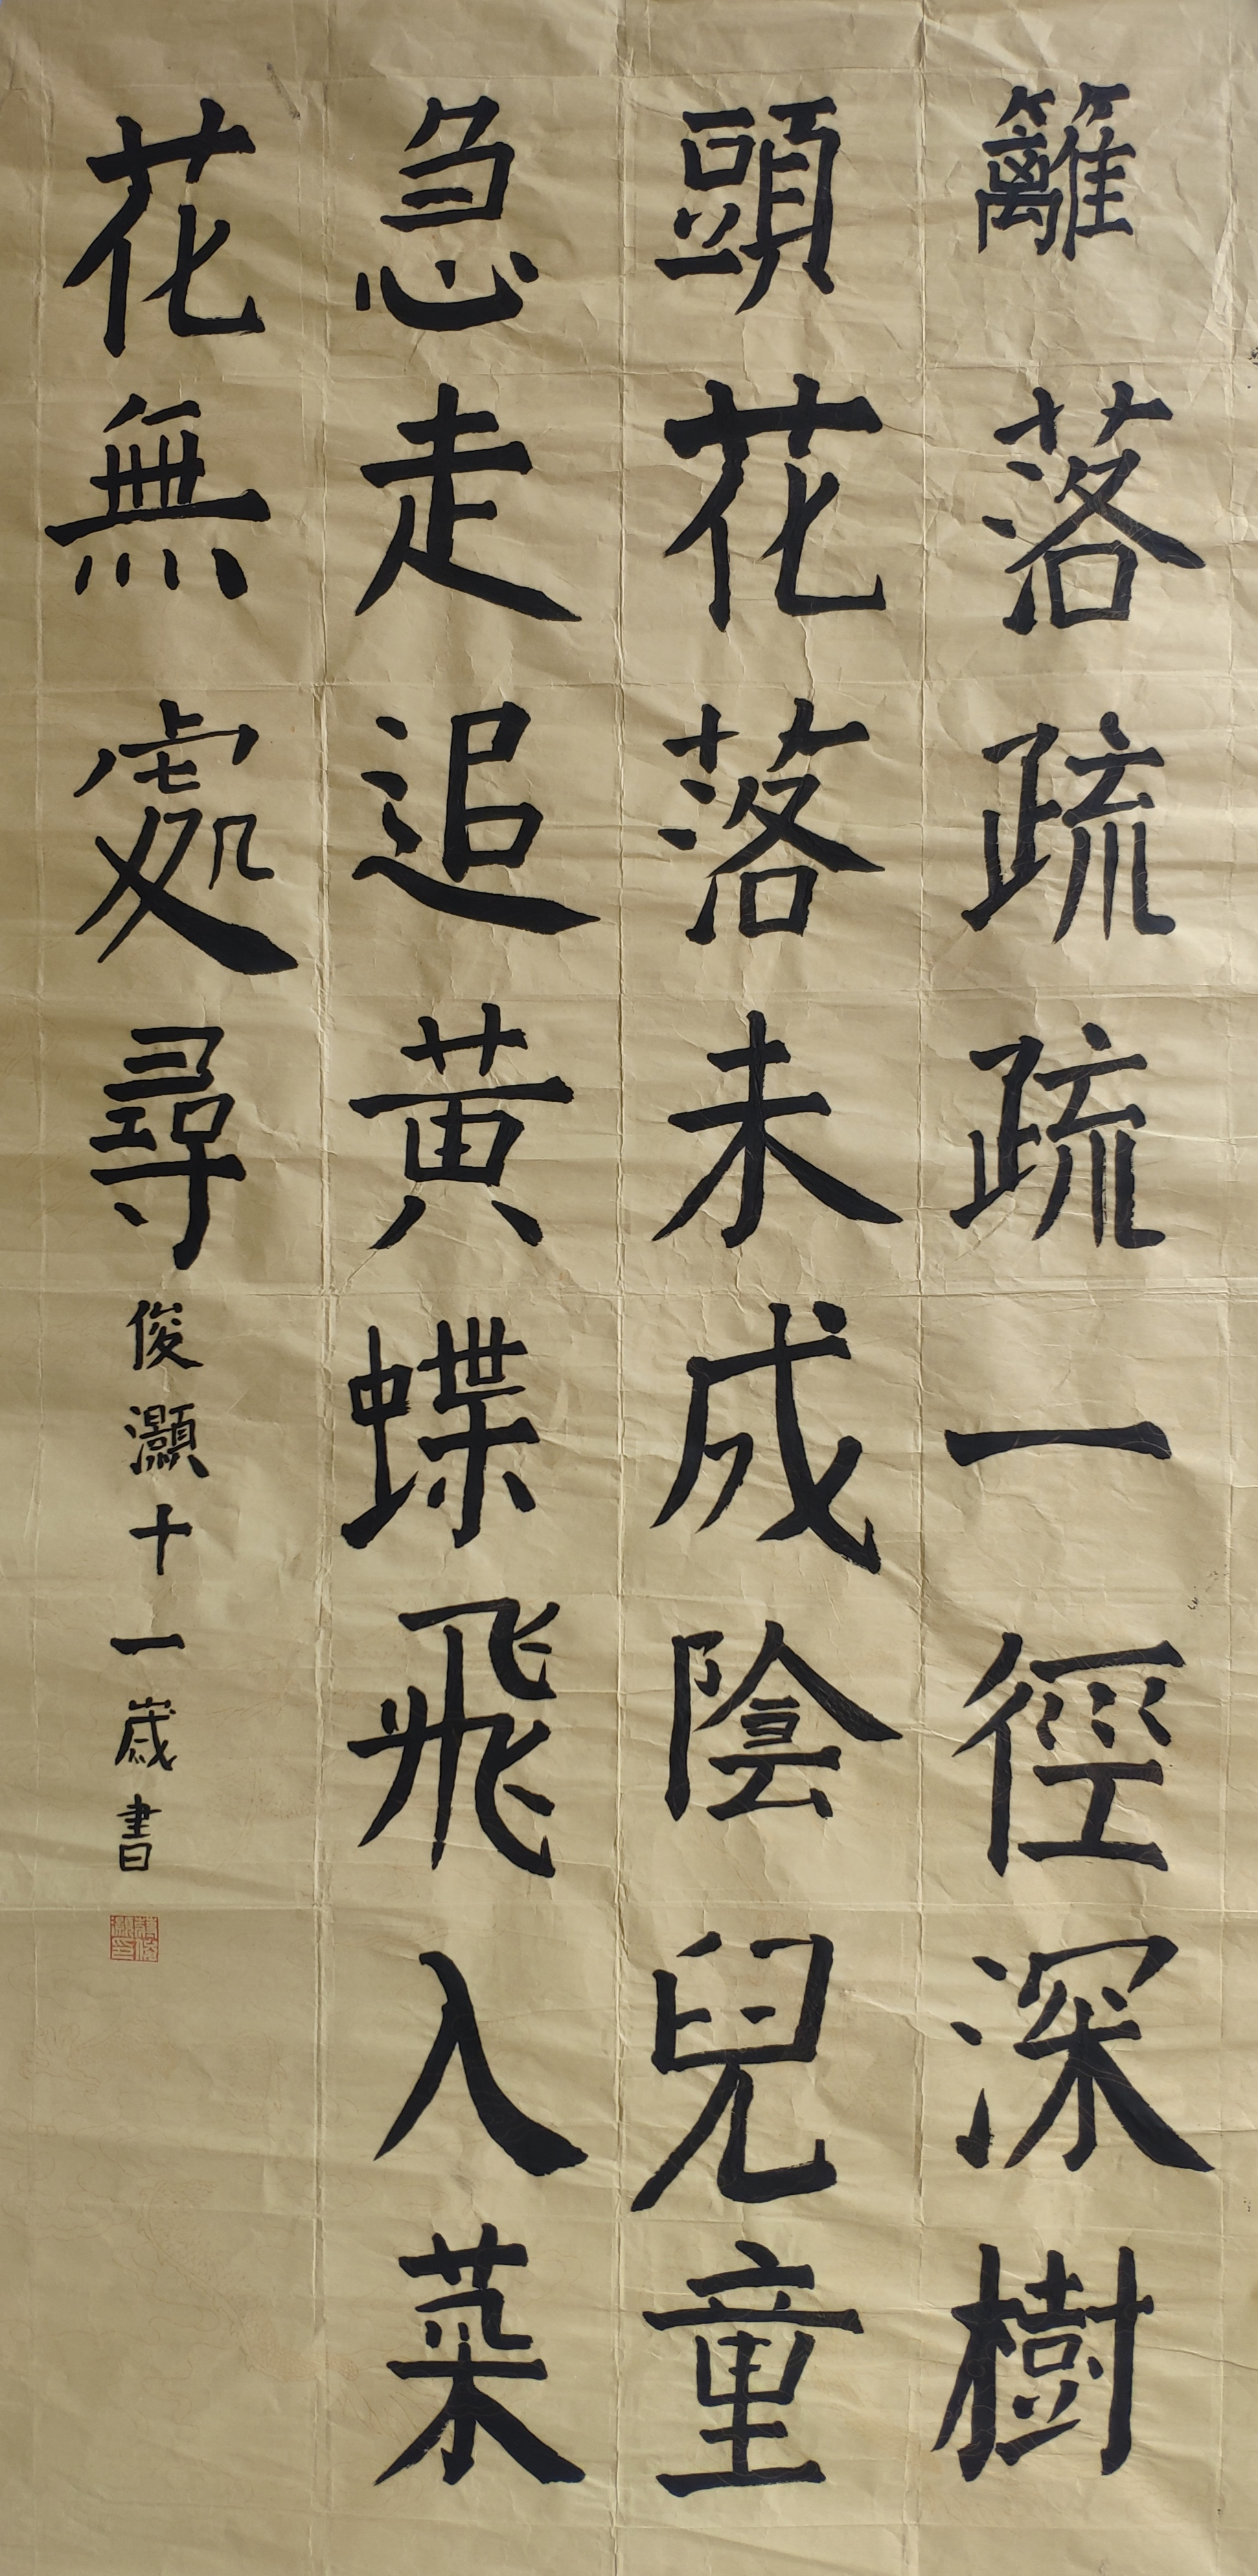 籬落疏疏一徑深樹
頭花落未成陰兒童
急走追黃蝶飛入菜
花無處尋
俊灝十一歲書